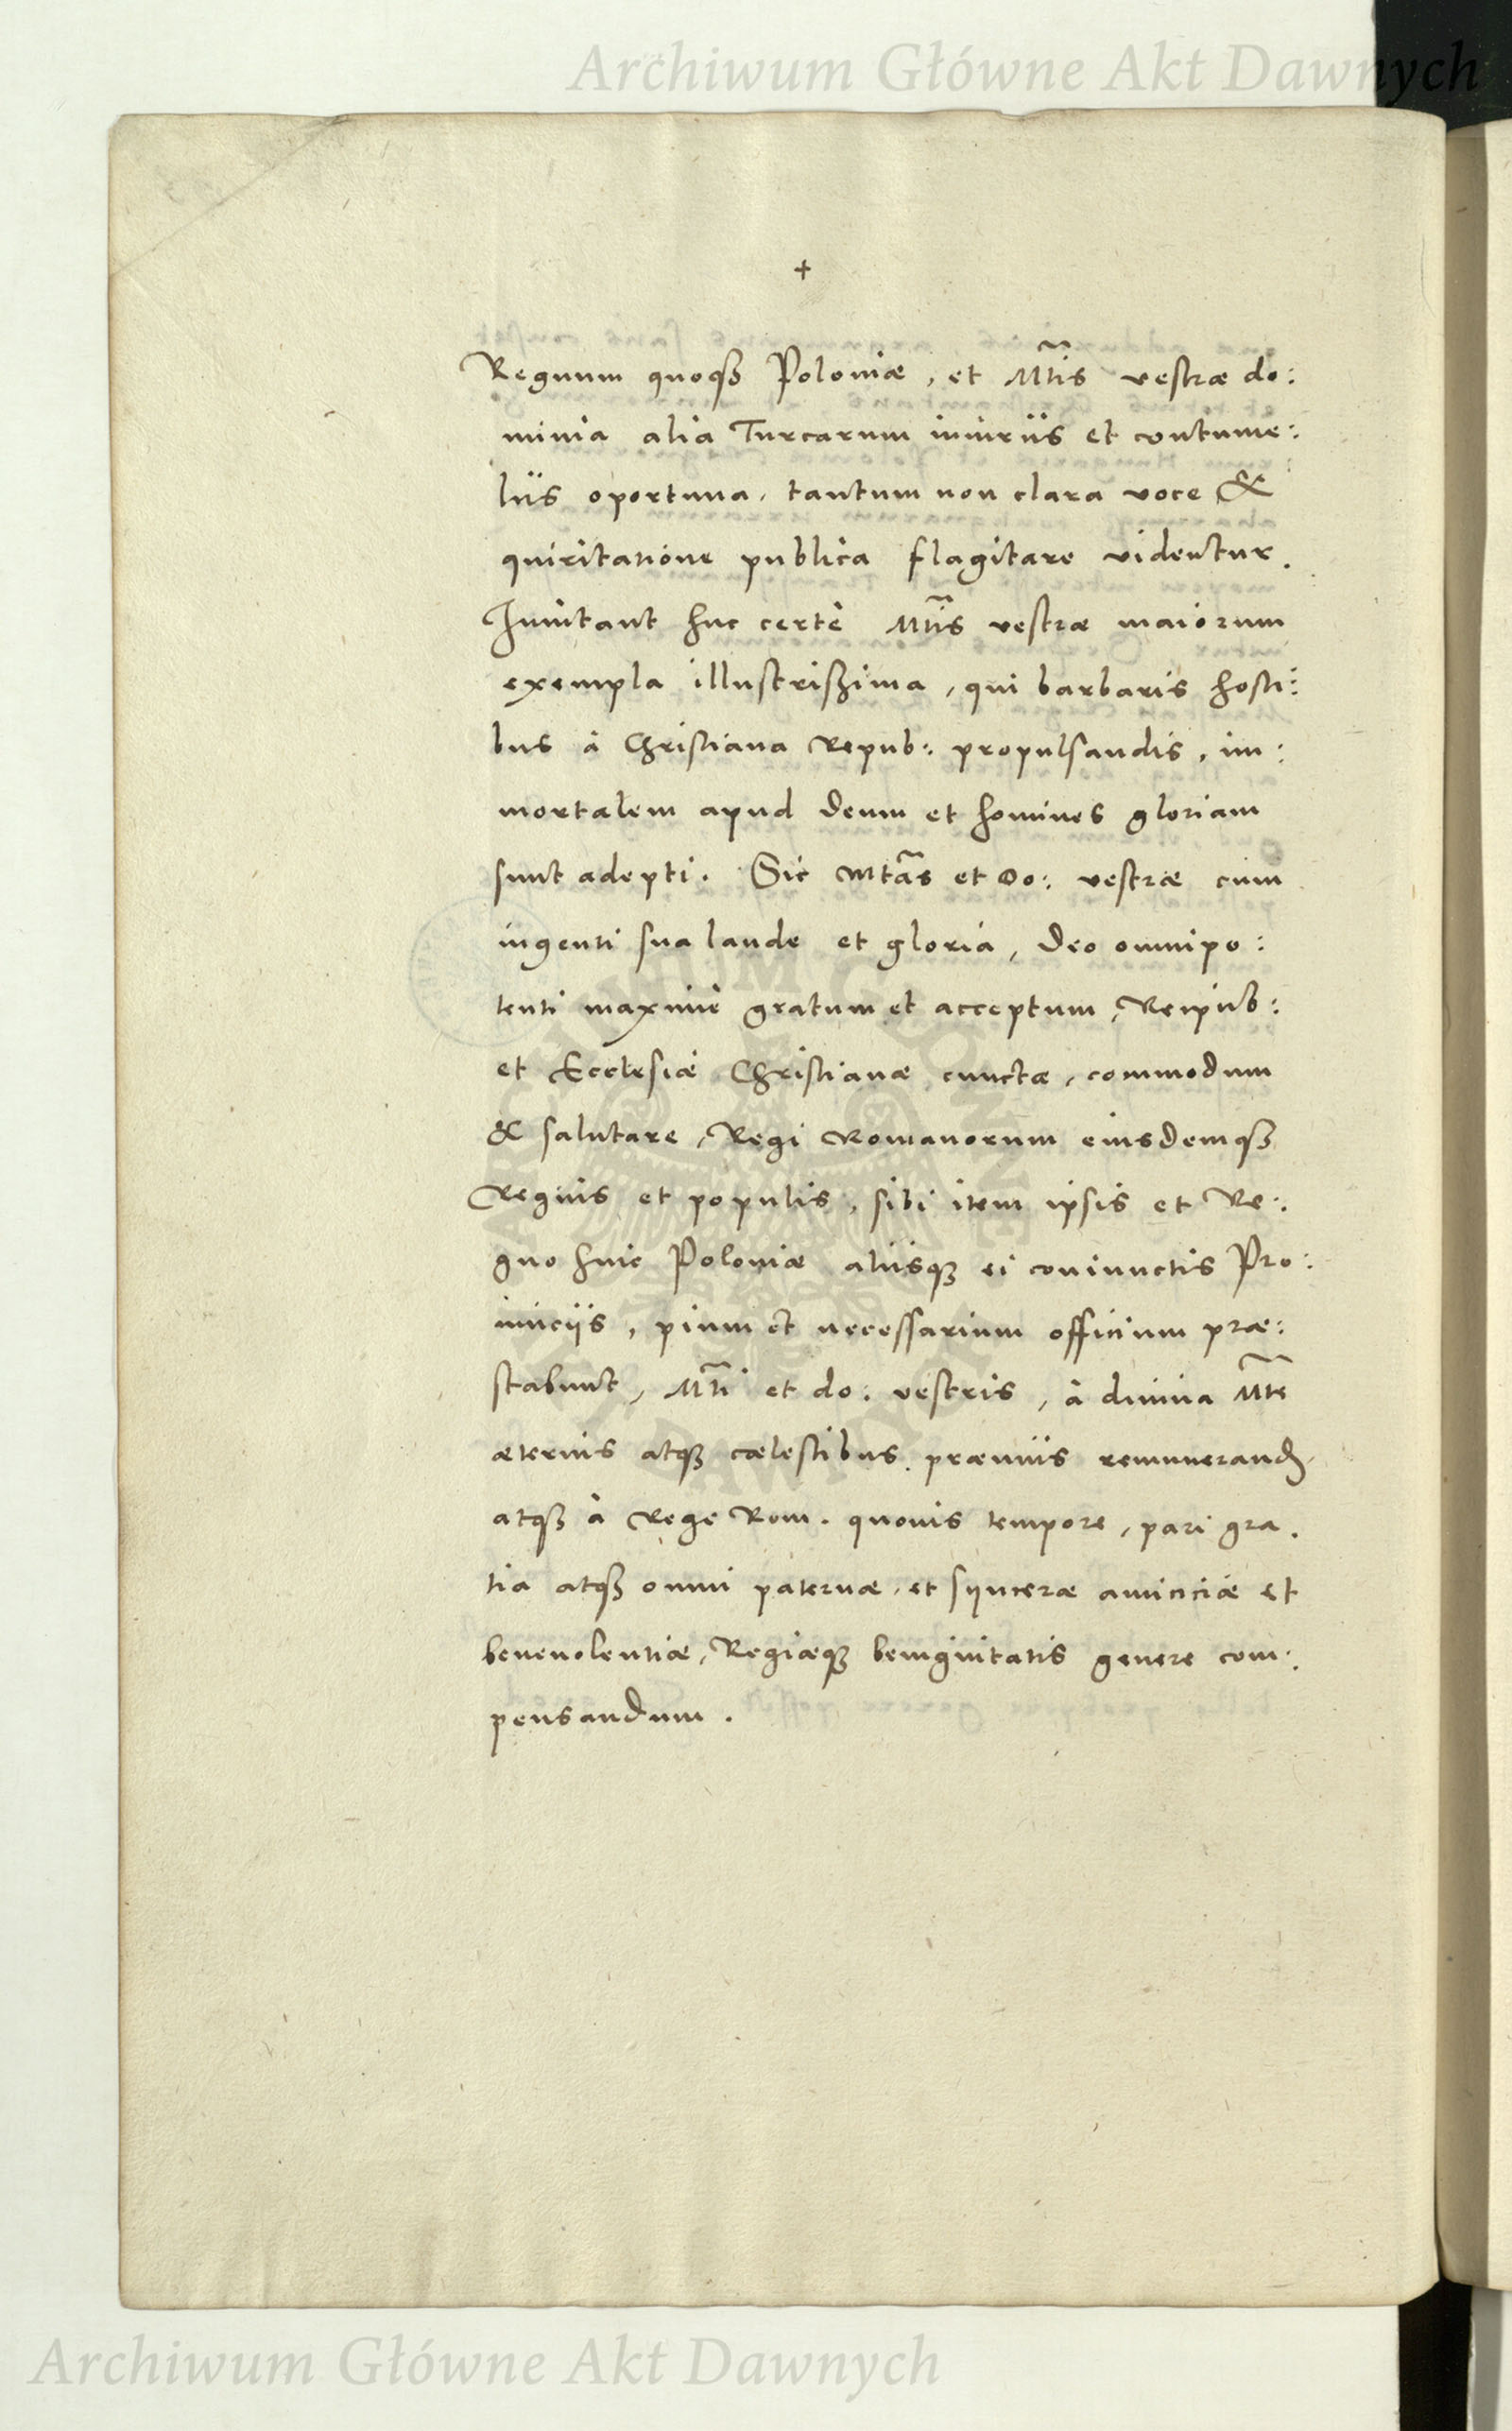 Archiwum Główne Akt Dawnych
+
Regnum quoqꝫ Poloniæ, et Mtis vestræ do:
minia alia Turcarum iniuriis et contume:
liis oportuna, tantum non clara voce &
quiritatione publica flagitare videntur.
Inuitant huc certè Mtis vestræ maiorum
exempla illustrißima, qui barbaris hosti:
bus à Christiana Repub: propulsandis, im:
mortalem apud Deum et homines gloriam
sunt adepti. Sic Mtas et Do: vestræ cum
ingenti sua laude et gloria, Deo omnipo:
tenti maximè gratum et acceptum, Reipub:
et Ecclesiæ Christianæ cunctæ, commodum
& salutare, Regi Romanorum eiusdemqꝫ
Regnis et populis, sibi item ipsis et Re:
gno huic Poloniæ aliisqꝫ ei coniunctis Pro:
uinciis, pium et necessarium officium præ:
stabunt, Mti et do: vestris, à diuina Mte
æternis atqꝫ cælestibus præmiis remunerand
atqꝫ à Rege Rom. quouis tempore, pari gra.
tia atqꝫ omni paternæ, et synceræ amiciciæ et
beneuolentiæ, Regiæqꝫ benignitatis genere com:
pensandum.
Archiwum Główne Akt Dawnych